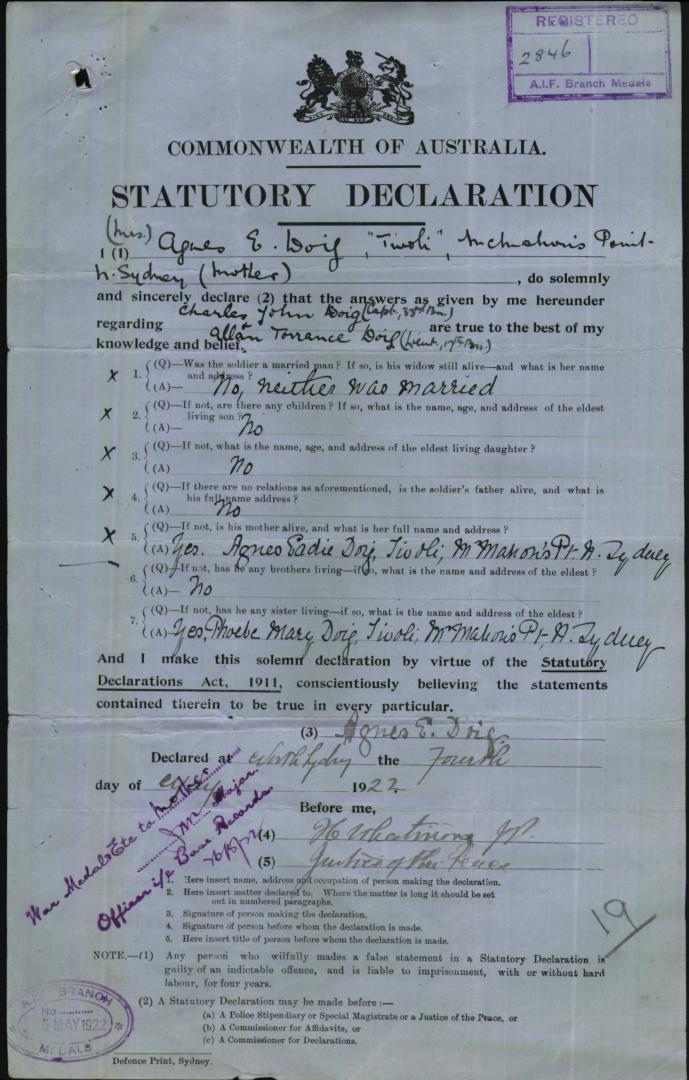 REGISTERED
2846
A.I.F. Branch Medals
COMMONWEALTH OF AUSTRALIA.
STATUTORY DECLARATION
(Mrs.)
I (1) Agnes E. Doig, "Tivoli", McMahon's Point
N. Sydney (Mother) , do solemnly
and sincerely declare (2) that the answers as given by me hereunder
Charles John Doig (Capt., 33rd Bn.)
regarding & Allan Torrance Doig (Lieut., 17th Bn.) are true to the best of my
knowledge and belief.
X 1. (Q)—Was the soldier a married man? If so, is his widow still alive—and what is her name
and address?
(A)— No, neither was married
X 2. (Q)—If not, are there any children? If so, what is the name, age, and address of the eldest
living son?
(A)— No
X 3. (Q)—If not, what is the name, age, and address of the eldest living daughter?
(A) No
X 4. (Q)—If there are no relations as aforementioned, is the soldier's father alive, and what is
his full name address?
(A) No
X 5. (Q)—If not, is his mother alive, and what is her full name and address?
(A) Yes. Agnes Eadie Doig, Tivoli, McMahon's Pt. N. Sydney
6. (Q)—If not, has he any brothers living—if so, what is the name and address of the eldest?
(A)— No
7. (Q)—If not, has he any sister living—if so, what is the name and address of the eldest?
(A)— Yes, Phoebe Mary Doig, Tivoli, McMahon's Pt, N. Sydney
And I make this solemn declaration by virtue of the Statutory
Declarations Act, 1911, conscientiously believing the statements
contained therein to be true in every particular.
(3) Agnes E. Doig.
Declared at North Sydney the Fourth
day of May 1922
Before me,
(4) H Whatmore J.P.
(5) Justice of the Peace
War Medals Etc to Mother
Major.
Officer i/c Base Records
1. Here insert name, address and occupation of person making the declaration.
2. Here insert matter declared to. Where the matter is long it should be set
out in numbered paragraphs.
3. Signature of person making the declaration.
4. Signature of person before whom the declaration is made.
5. Here insert title of person before whom the declaration is made.
19
NOTE.—(1) Any person who wilfully mades a false statement in a Statutory Declaration is
guilty of an indictable offence, and is liable to imprisonment, with or without hard
labour, for four years.
(2) A Statutory Declaration may be made before:—
(a) A Police Stipendiary or Special Magistrate or a Justice of the Peace, or
(b) A Commissioner for Affidavits, or
(c) A Commissioner for Declarations.
A.I.F. BRANCH
No.
5 MAY 1922
MEDALS
Defence Print, Sydney.